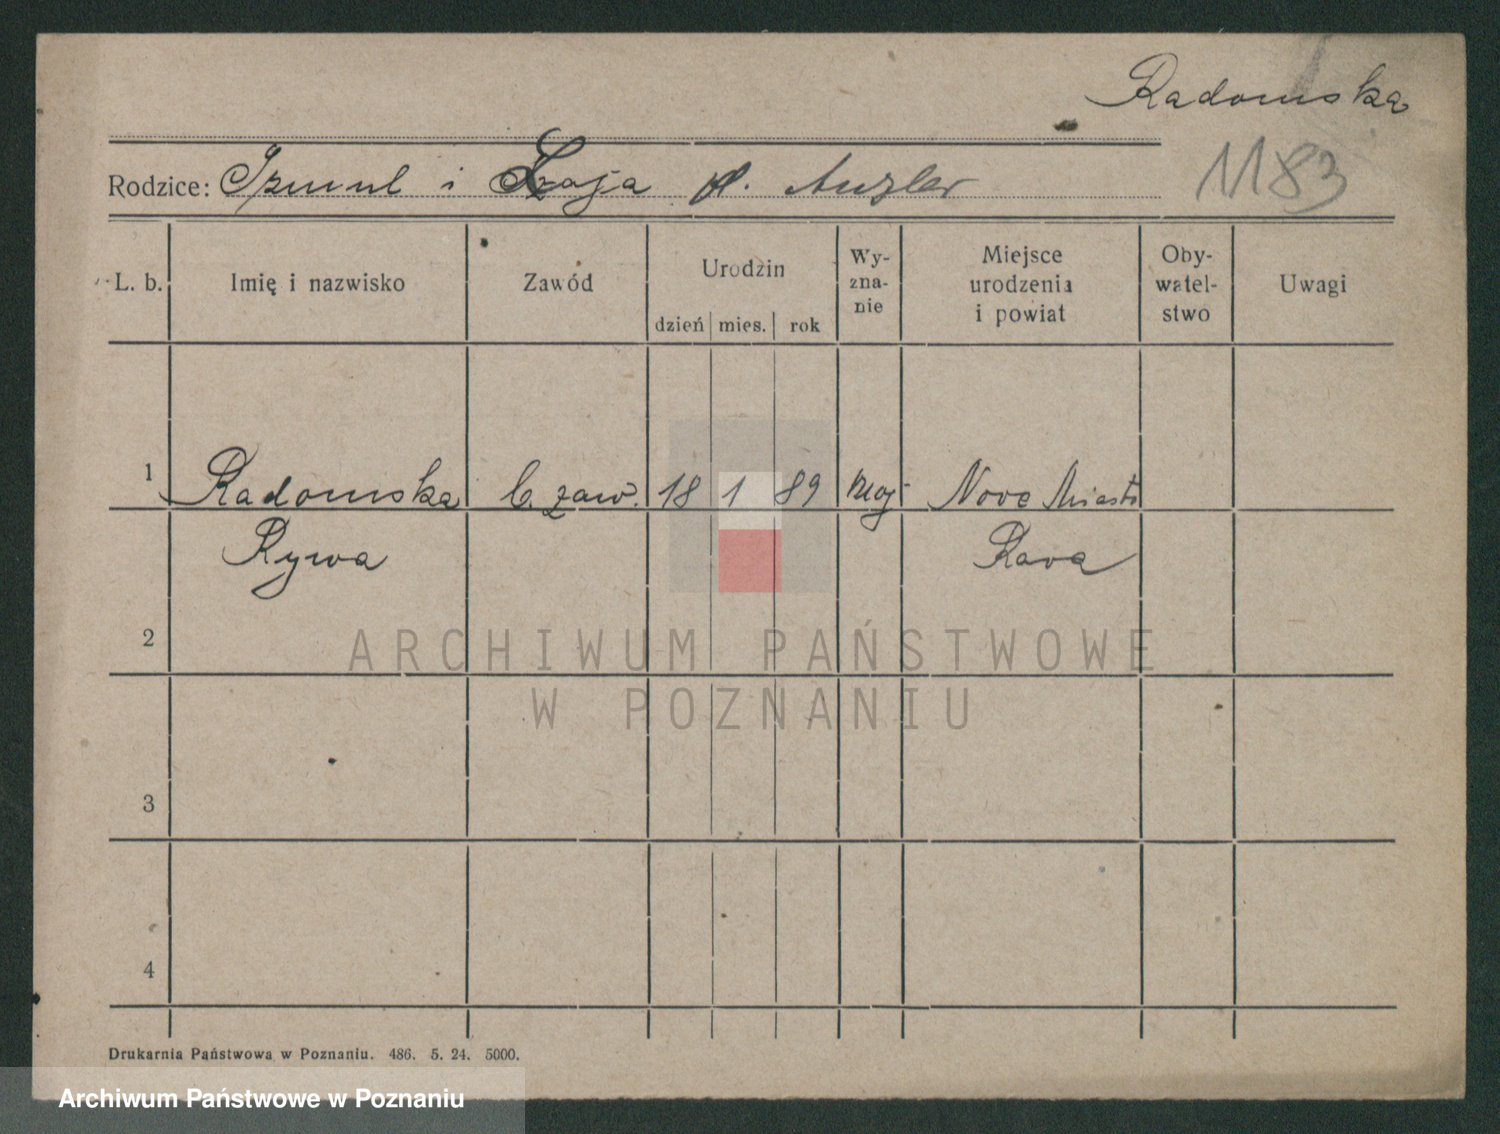 Radomska
1183
Rodzice: Izmul i Szaja d. Anzler
L. b. Imię i nazwisko Zawód Urodzin dzień mies. rok Wy-zna-nie Miejsce urodzenia i powiat Oby-watel-stwo Uwagi
1 Radomska b. zaw. 18 1 89 moj Nove Miasto
Rywa Rava
2
ARCHIWUM PAŃSTWOWE
W POZNANIU
3
4
Drukarnia Państwowa w Poznaniu. 486. 5. 24. 5000.
Archiwum Państwowe w Poznaniu